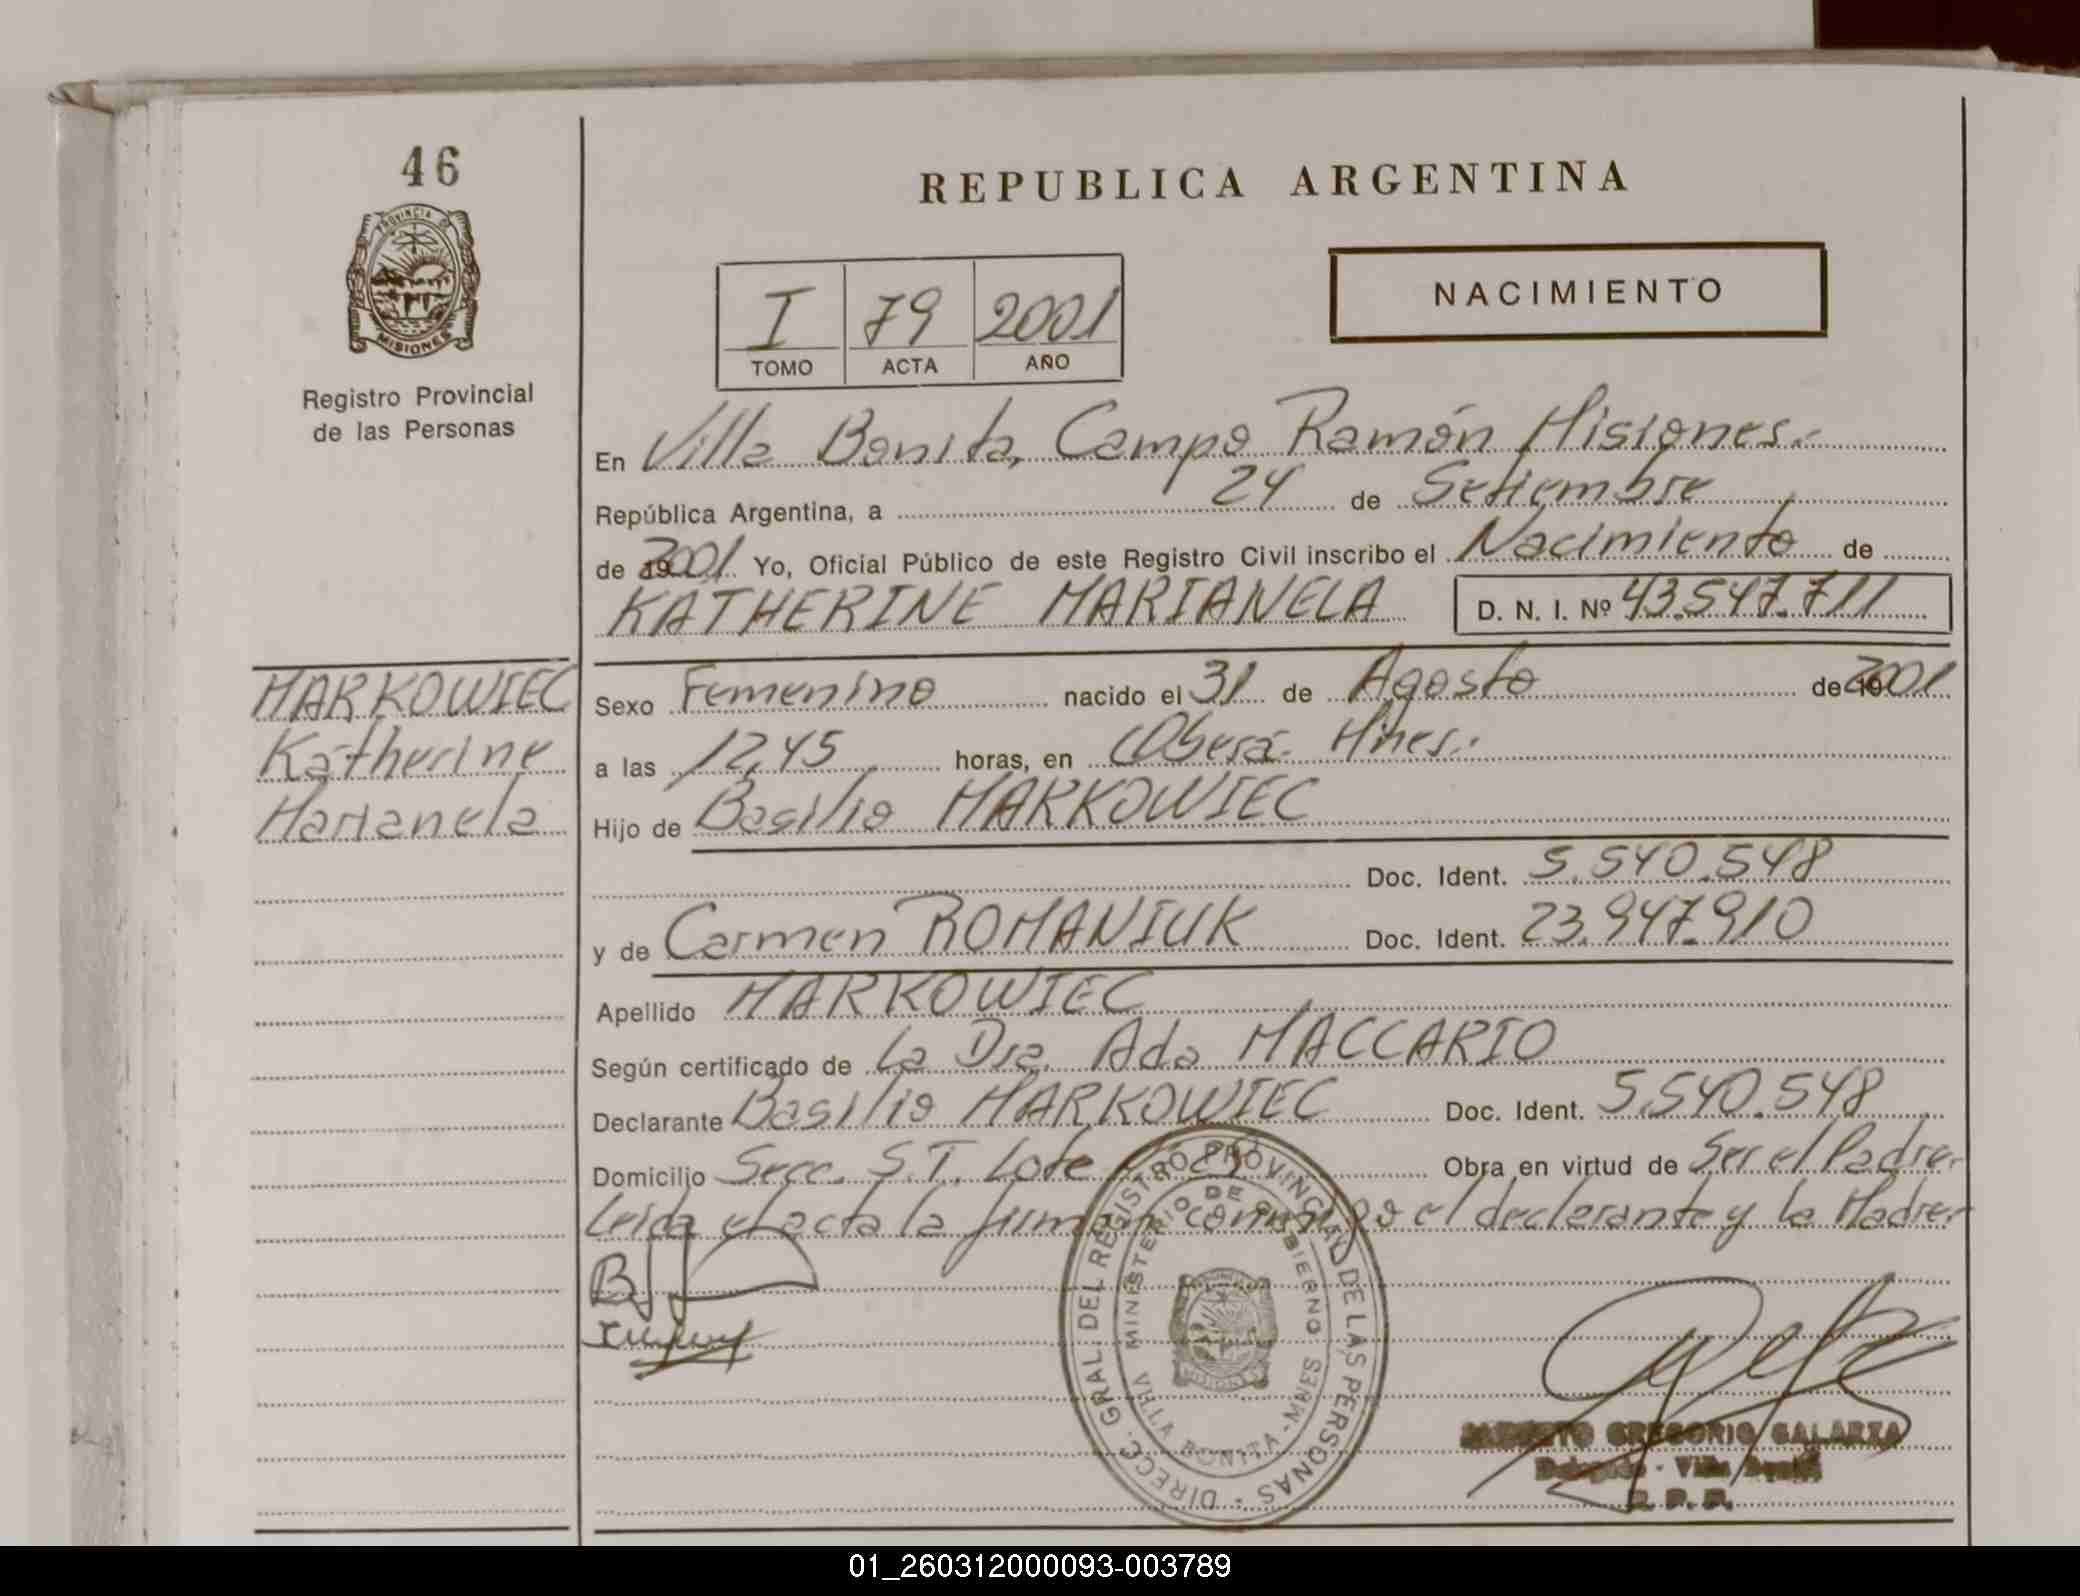 46
PROVINCIA D
MISIONES
Registro Provincial
de las Personas
REPUBLICA ARGENTINA
I 79 2001
TOMO ACTA AÑO
NACIMIENTO
En Villa Bonita, Campo Ramón Misiones.-
República Argentina, a 24 de Setiembre
de 2001 Yo, Oficial Público de este Registro Civil inscribo el Nacimiento de
KATHERINE MARIANELA D. N. I. Nº 43.547.711
MARKOWIEC
Katherine
Marianela
Sexo Femenino nacido el 31 de Agosto de 2001
a las 12,45 horas, en Oberá. Mnes.-
Hijo de Basilio MARKOWIEC
Doc. Ident. 5.540.548
y de Carmen ROMANIUK Doc. Ident. 23.947.910
Apellido MARKOWIEC
Según certificado de La Dra. Ada MACCARIO
Declarante Basilio MARKOWIEC Doc. Ident. 5.540.548
Domicilio Secc. S.T. Lote Obra en virtud de Ser el Padre.
Leida el acta la firman conmigo el declarante y la Madre.
DIRECC. GRAL. DEL REGISTRO PROVINCIAL DE LAS PERSONAS -
MINISTERIO DE GOBIERNO
VILLA BONITA - MNES
GREGORIO GALARZA
Delegado - Villa Bonita
R. P. P.
01_260312000093-003789